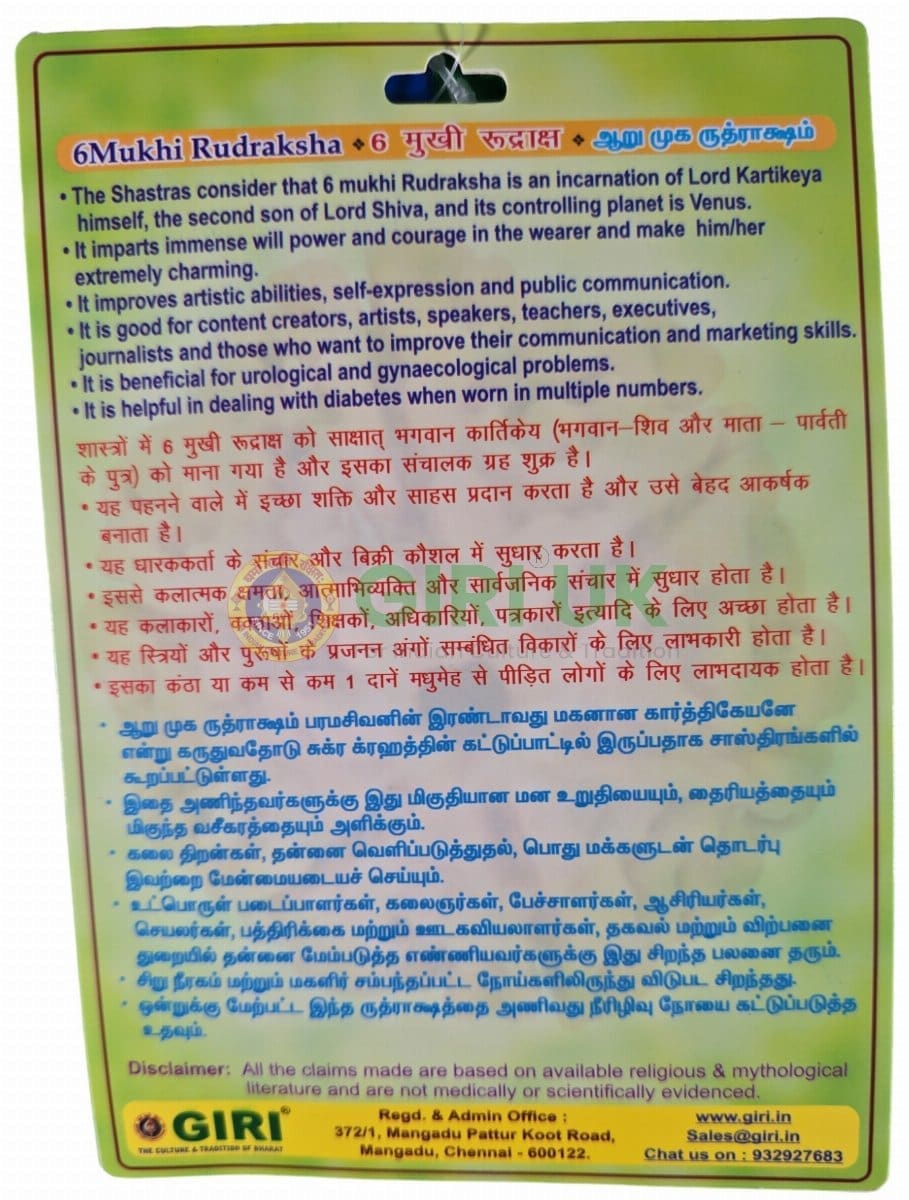 6Mukhi Rudraksha ❖ 6 मुखी रूद्राक्ष ❖ ஆறு முக ருத்ராக்ஷம்
• The Shastras consider that 6 mukhi Rudraksha is an incarnation of Lord Kartikeya
himself, the second son of Lord Shiva, and its controlling planet is Venus.
• It imparts immense will power and courage in the wearer and make him/her
extremely charming.
• It improves artistic abilities, self-expression and public communication.
• It is good for content creators, artists, speakers, teachers, executives,
journalists and those who want to improve their communication and marketing skills.
• It is beneficial for urological and gynaecological problems.
• It is helpful in dealing with diabetes when worn in multiple numbers.
शास्त्रों में 6 मुखी रूद्राक्ष को साक्षात् भगवान कार्तिकेय (भगवान–शिव और माता – पार्वती
के पुत्र) को माना गया है और इसका संचालक ग्रह शुक्र है।
• यह पहनने वाले में इच्छा शक्ति और साहस प्रदान करता है और उसे बेहद आकर्षक
बनाता है।
• यह धारककर्ता के संचार और बिक्री कौशल में सुधार करता है।
• इससे कलात्मक क्षमता, आत्माभिव्यक्ति और सार्वजनिक संचार में सुधार होता है।
• यह कलाकारों, वक्ताओं, शिक्षकों, अधिकारियों, पत्रकारों इत्यादि के लिए अच्छा होता है।
• यह स्त्रियों और पुरूषों के प्रजनन अंगों सम्बंधित विकारों के लिए लाभकारी होता है।
• इसका कंठा या कम से कम 1 दानें मधुमेह से पीड़ित लोगों के लिए लाभदायक होता है।
GIRI UK
• ஆறு முக ருத்ராக்ஷம் பரமசிவனின் இரண்டாவது மகனான கார்த்திகேயனே
என்று கருதுவதோடு சுக்ர க்ரஹத்தின் கட்டுப்பாட்டில் இருப்பதாக சாஸ்திரங்களில்
கூறப்பட்டுள்ளது.
• இதை அணிந்தவர்களுக்கு இது மிகுதியான மன உறுதியையும், தைரியத்தையும்
மிகுந்த வசீகரத்தையும் அளிக்கும்.
• கலை திறன்கள், தன்னை வெளிப்படுத்துதல், பொது மக்களுடன் தொடர்பு
இவற்றை மேன்மையடையச் செய்யும்.
• உட்பொருள் படைப்பாளர்கள், கலைஞர்கள், பேச்சாளர்கள், ஆசிரியர்கள்,
செயலர்கள், பத்திரிக்கை மற்றும் ஊடகவியலாளர்கள், தகவல் மற்றும் விற்பனை
துறையில் தன்னை மேம்படுத்த எண்ணியவர்களுக்கு இது சிறந்த பலனை தரும்.
• சிறு நீரகம் மற்றும் மகளிர் சம்பந்தப்பட்ட நோய்களிலிருந்து விடுபட சிறந்தது.
• ஒன்றுக்கு மேற்பட்ட இந்த ருத்ராக்ஷத்தை அணிவது நீரிழிவு நோயை கட்டுப்படுத்த
உதவும்.
Disclaimer: All the claims made are based on available religious & mythological
literature and are not medically or scientifically evidenced.
GIRI®
THE CULTURE & TRADITION OF BHARAT
Regd. & Admin Office :
372/1, Mangadu Pattur Koot Road,
Mangadu, Chennai - 600122.
www.giri.in
Sales@giri.in
Chat us on : 932927683